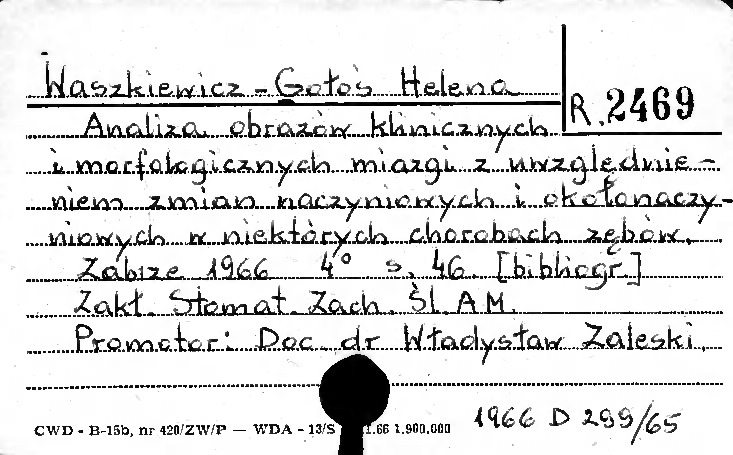 Waszkiewicz - Gołoś Helena
R. 2469
Analiza obrazów klinicznych
i morfologicznych miazgi z uwzględnie-
niem zmian naczyniowych i okołonaczy-
niowych w niektórych chorobach zębów.
Zabrze 1966 4° s. 46. [bibliogr.]
Zakł. Stomat. Zach. Śl. A M.
Promotor: Doc. dr Władysław Zaleski.
CWD - B-15b, nr 420/ZW/P — WDA - 13/S 1.66 1.900.000
1966 D 299/65